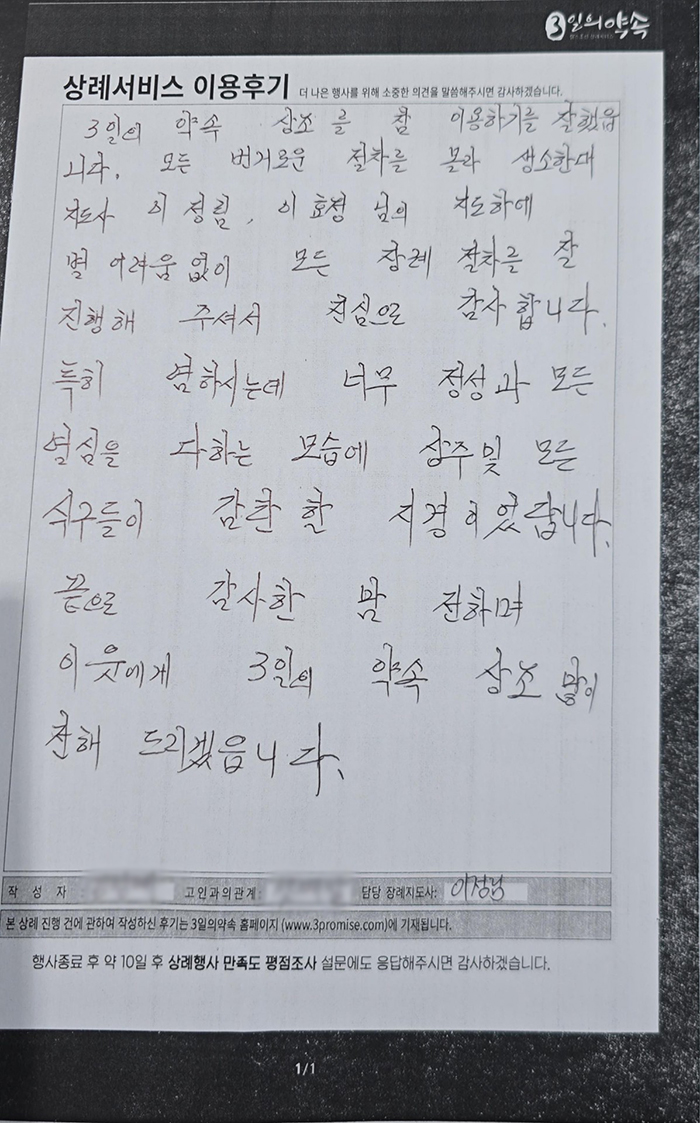 3일의약속
상례서비스 이용후기 더 나은 행사를 위해 소중한 의견을 말씀해주시면 감사하겠습니다.
3일의 약속 상조를 참 이용하기를 잘했읍
니다. 모든 번거로운 절차를 몰라 생소한데
지도사 이정림, 이효정 님의 지도하에
별 어려움 없이 모든 장례 절차를 잘
진행해 주셔서 진심으로 감사합니다.
특히 염하시는데 너무 정성과 모든
열심을 다하는 모습에 상주 및 모든
식구들이 감탄할 지경이었답니다.
끝으로 감사한 맘 전하며
이웃에게 3일의 약속 상조 많이
전해 드리겠읍니다.
작 성 자 고인과의관계: 담당 장례지도사: 이정림
본 상례 진행 건에 관하여 작성하신 후기는 3일의약속 홈페이지 (www.3promise.com)에 기재됩니다.
행사종료 후 약 10일 후 상례행사 만족도 평점조사 설문에도 응답해주시면 감사하겠습니다.
1/1